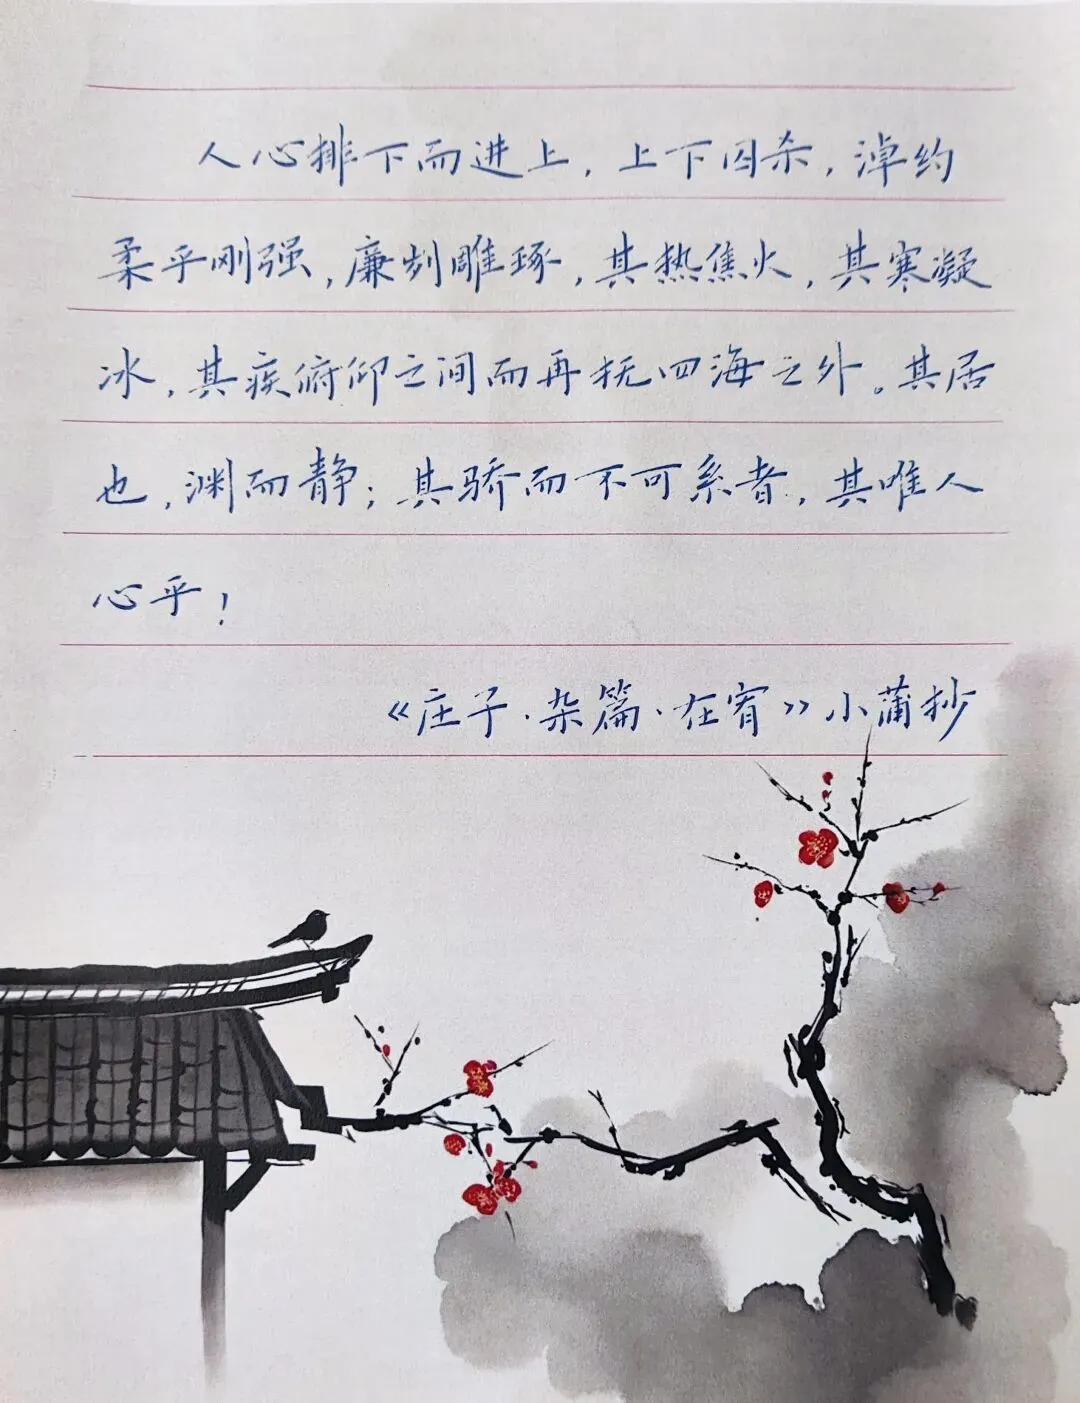 人心排下而进上，上下囚杀，淖约
柔乎刚强，廉刿雕琢，其热焦火，其寒凝
冰，其疾俯仰之间而再抚四海之外。其居
也，渊而静；其骄而不可系者，其唯人
心乎！
《庄子·杂篇·在宥》小蒲抄